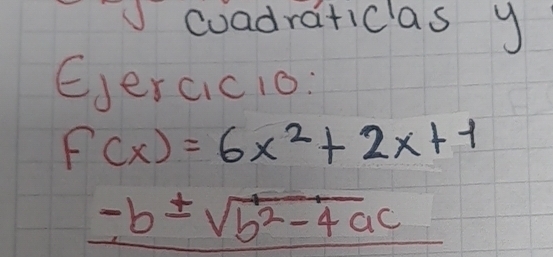 cuadráticas y
Ejercicio:
F(x) = 6x² + 2x + 1
-b ± √b² - 4ac